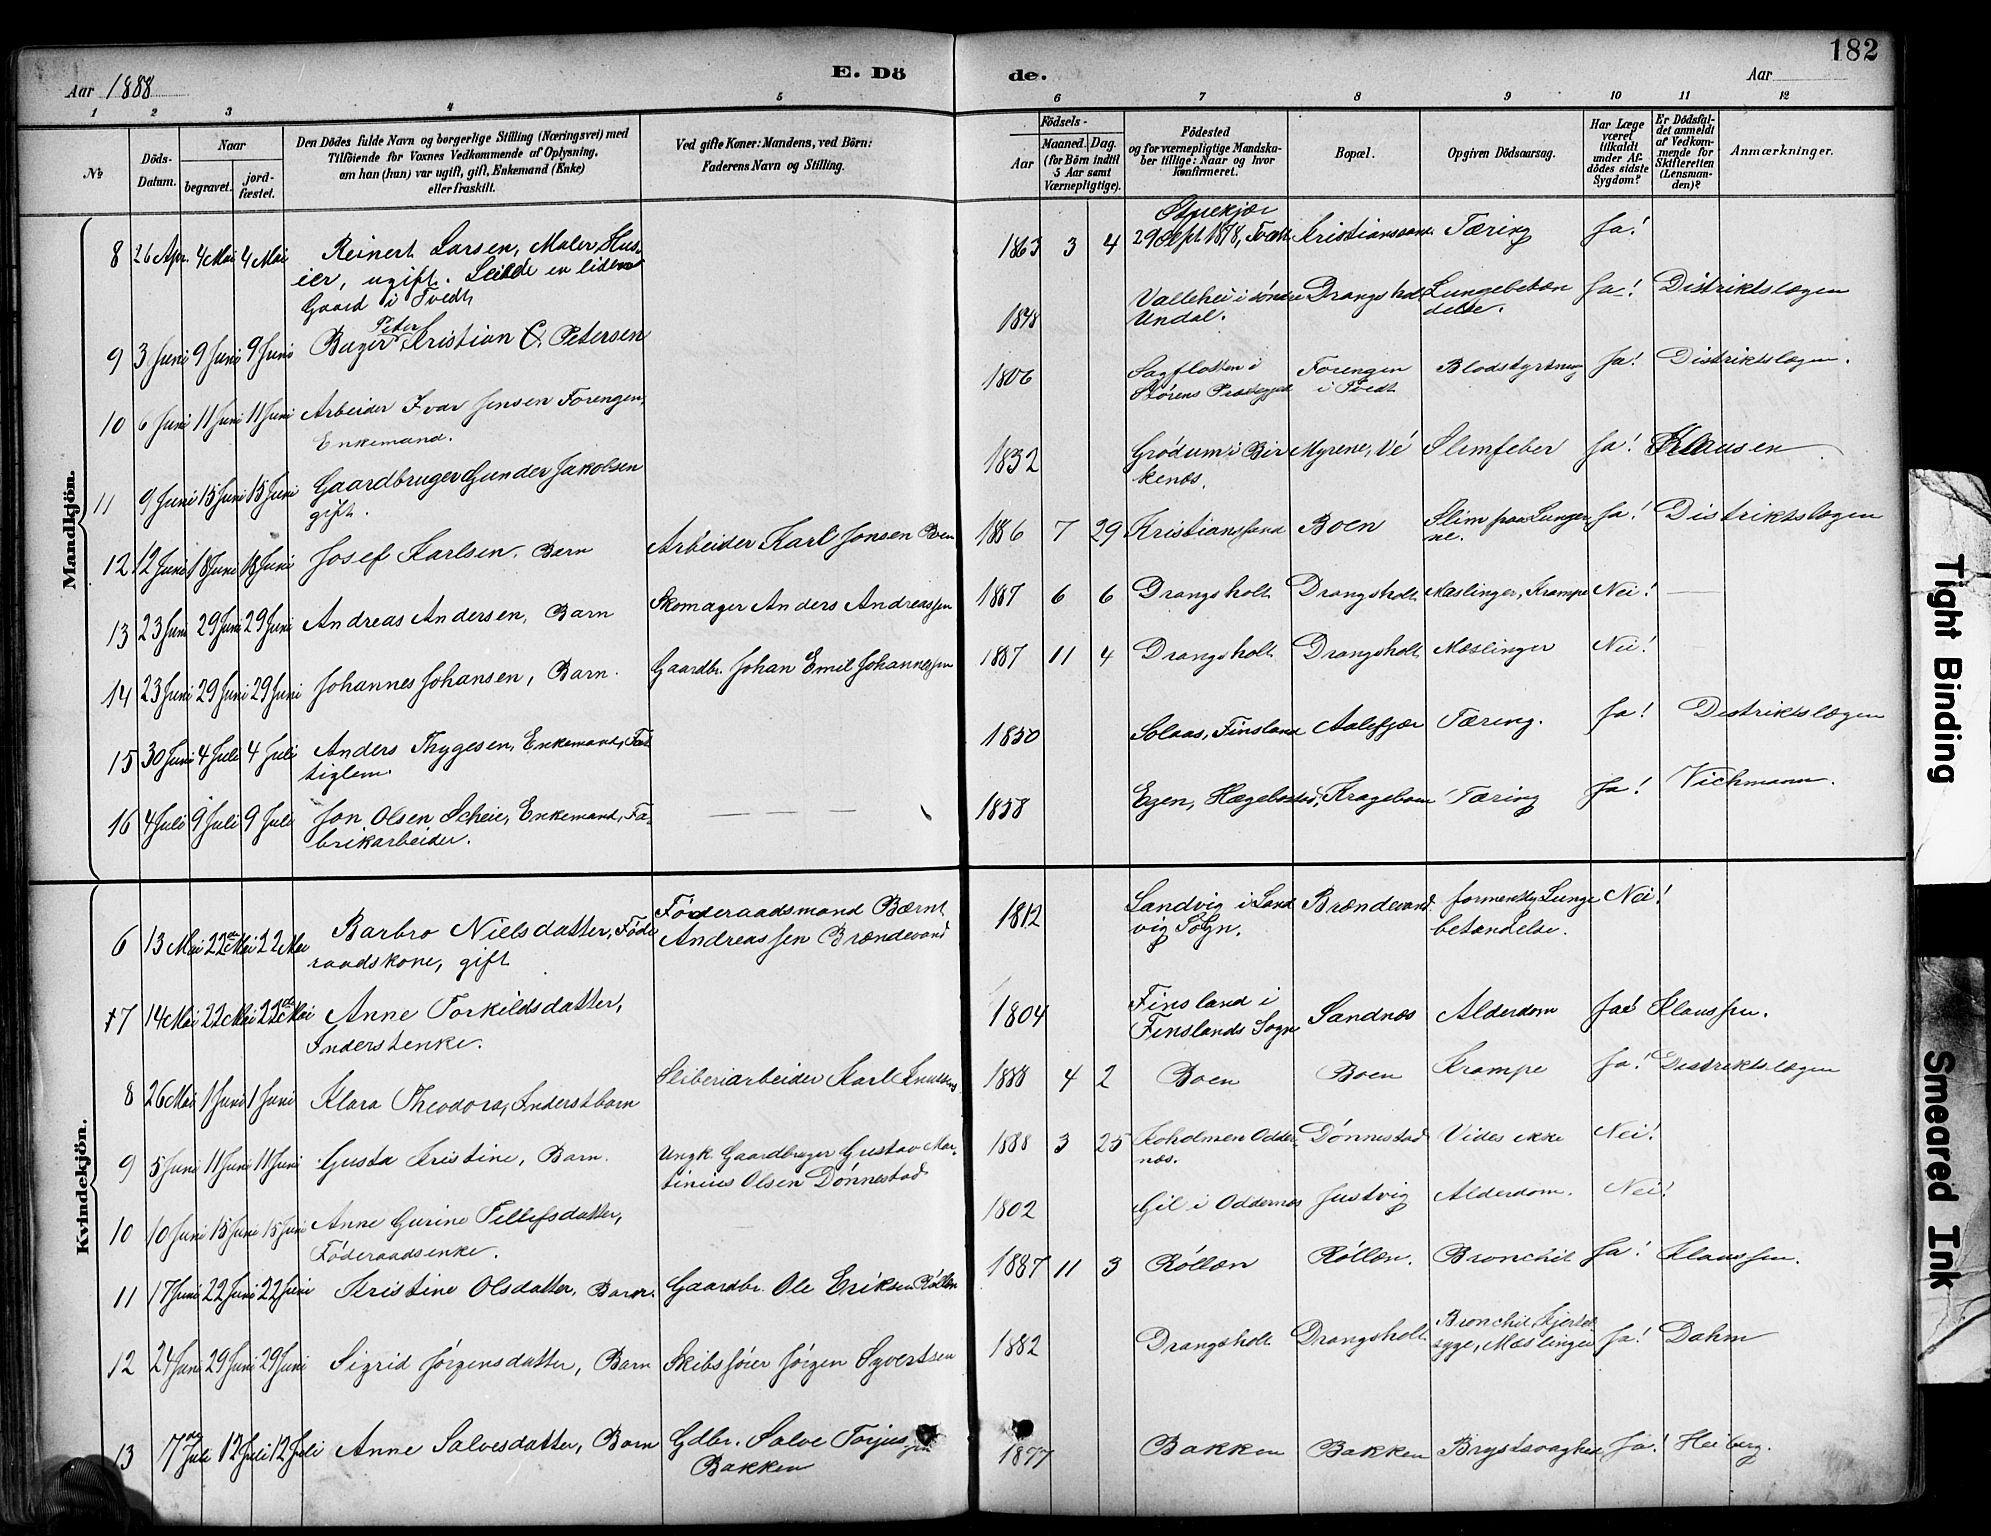 182
Aar 1888
E. Dö
de.
Aar
1 2 3 4 5 6 7 8 9 10 11 12
№
Döds-
Datum.
Naar
begravet.
jord-
fæstet.
Den Dödes fulde Navn og borgerlige Stilling (Næringsvei) med
Tilföiende for Voxnes Vedkommende af Oplysning,
om han (hun) var ugift, gift, Enkemand (Enke)
eller fraskilt.
Ved gifte Koner: Mandens, ved Börn:
Faderens Navn og Stilling.
Födsels-
Aar
Maaned.
Dag.
(for Börn indtil
5 Aar samt
Værnepligtige).
Födested
og for værnepligtige Mandska-
ber tillige: Naar og hvor
konfirmeret.
Bopæl.
Opgiven Dödsaarsag.
Har Læge
været
tilkaldt
under Af-
dödes sidste
Sygdom?
Er Dödsfal-
det anmeldt
af Vedkom-
mende for
Skifteretten
(Lensman-
den)?
Anmærkninger.
Mandkjön.
8 26 Apr. 4 Mai 4 Mai Reinert Larsen, Maler, Hus-
ier, ugift. en liden
Gaard i Tvedt
1863 3 4 29 Sept 1878, Tvedt Kristianssand Tæring Ja!
9 3 Juni 9 Juni 9 Juni Bager Peter Kristian C. Petersen
1848 Vallehei i söndre Drangsholt Lungebetæn Ja! Distriktslægen
Undal. delse.
10 6 Juni 11 Juni 11 Juni Arbeider Ivar Jensen Forengen,
Enkemand.
1806 Sagflotten i Forengen Blodstyrtning Ja! Distriktslægen.
Störens Præstegjeld i Tvedt
11 9 Juni 15 Juni 15 Juni Gaardbruger Gunder Jakobsen
gift.
1832 Grödum i Bir Myrene, Ve Slimfeber Ja! Klausen
kenæs.
12 12 Juni 18 Juni 18 Juni Josef Karlsen. Barn Arbeider Karl Jonsen Boen
1886 7 29 Kristianssand Boen Slim paa Lunger Ja! Distriktslægen
ne.
13 23 Juni 29 Juni 29 Juni Andreas Andersen, Barn Skomager Anders Andreassen
1887 6 6 Drangsholt Drangsholt Mæslinger, Krampe Nei! —
14 23 Juni 29 Juni 29 Juni Johannes Johansen, Barn. Gaardbr. Johan Emil Johannessen
1887 11 4 Drangsholt Drangsholt Mæslinger Nei!
15 30 Juni 4 Juli 4 Juli Anders Thygesen, Enkemand, Fat
tiglem.
1830 Solaas, Finsland Aalefjær Tæring. Ja! Distriktslægen
16 4 Juli 9 Juli 9 Juli Jon Olsen Scheie, Enkemand, Fa-
brikarbeider.
1838 Egen, Hægebostad, Krageboen Tæring Ja! Vichmann.
Kvindekjön.
6 13 Mai 22de Mai 22 Mai Barbro Nielsdatter, Föde
raadskone, gift
Föderaadsmand Bærnt
Andreassen Brændevand
1812 Landvig i Land Brændevand formentlig Lunge Nei!
vig Sogn. betændelse.
7 14 Mai 22 Mai 22de Mai Anne Torkildsdatter,
Inderstenke.
1804 Finsland i Sandnæs Alderdom Ja! Klaussen.
Finslands Sogn
8 26 Mai 1 Juni 1 Juni Klara Theodora, Inderstbarn Sliberiarbeider Karl Knudsen
1888 4 2 Boen Boen Krampe Ja! Distriktslægen
9 5 Juni 11 Juni 11 Juni Gusta Kristine, Barn. Ungk. Gaardbruger Gustav Mar-
tinius Olsen Dönnestad
1888 3 25 Koholmen Odder Dönnestad Vides ikke Nei!
næs.
10 10 Juni 15 Juni 15 Juni Anne Gurine Tellefsdatter,
Föderaadsenke.
1802 Gil i Oddernæs Justvig Alderdom. Nei!
11 17 Juni 22 Juni 22 Juni Kristine Olsdatter, Barn. Gaardbr. Ole Eriksen Röllen
1887 11 3 Röllæn Röllæn. Bronchit Ja! Klaussen.
12 24 Juni 29 Juni 29 Juni Sigrid Jörgensdatter, Barn Skibsförer Jörgen Syvertsen
1882 Drangsholt Drangsholt Bronchit, Hjerte
syge, Mæslinger Ja! Dahm
13 7de Juli 12 Juli 12 Juli Anne Salvesdatter, Barn Gdbr. Salve Torjus
sen
Bakken
1877 Bakken Bakken Brystsvaghed Ja! Heiberg.
Tight Binding
Smeared Ink